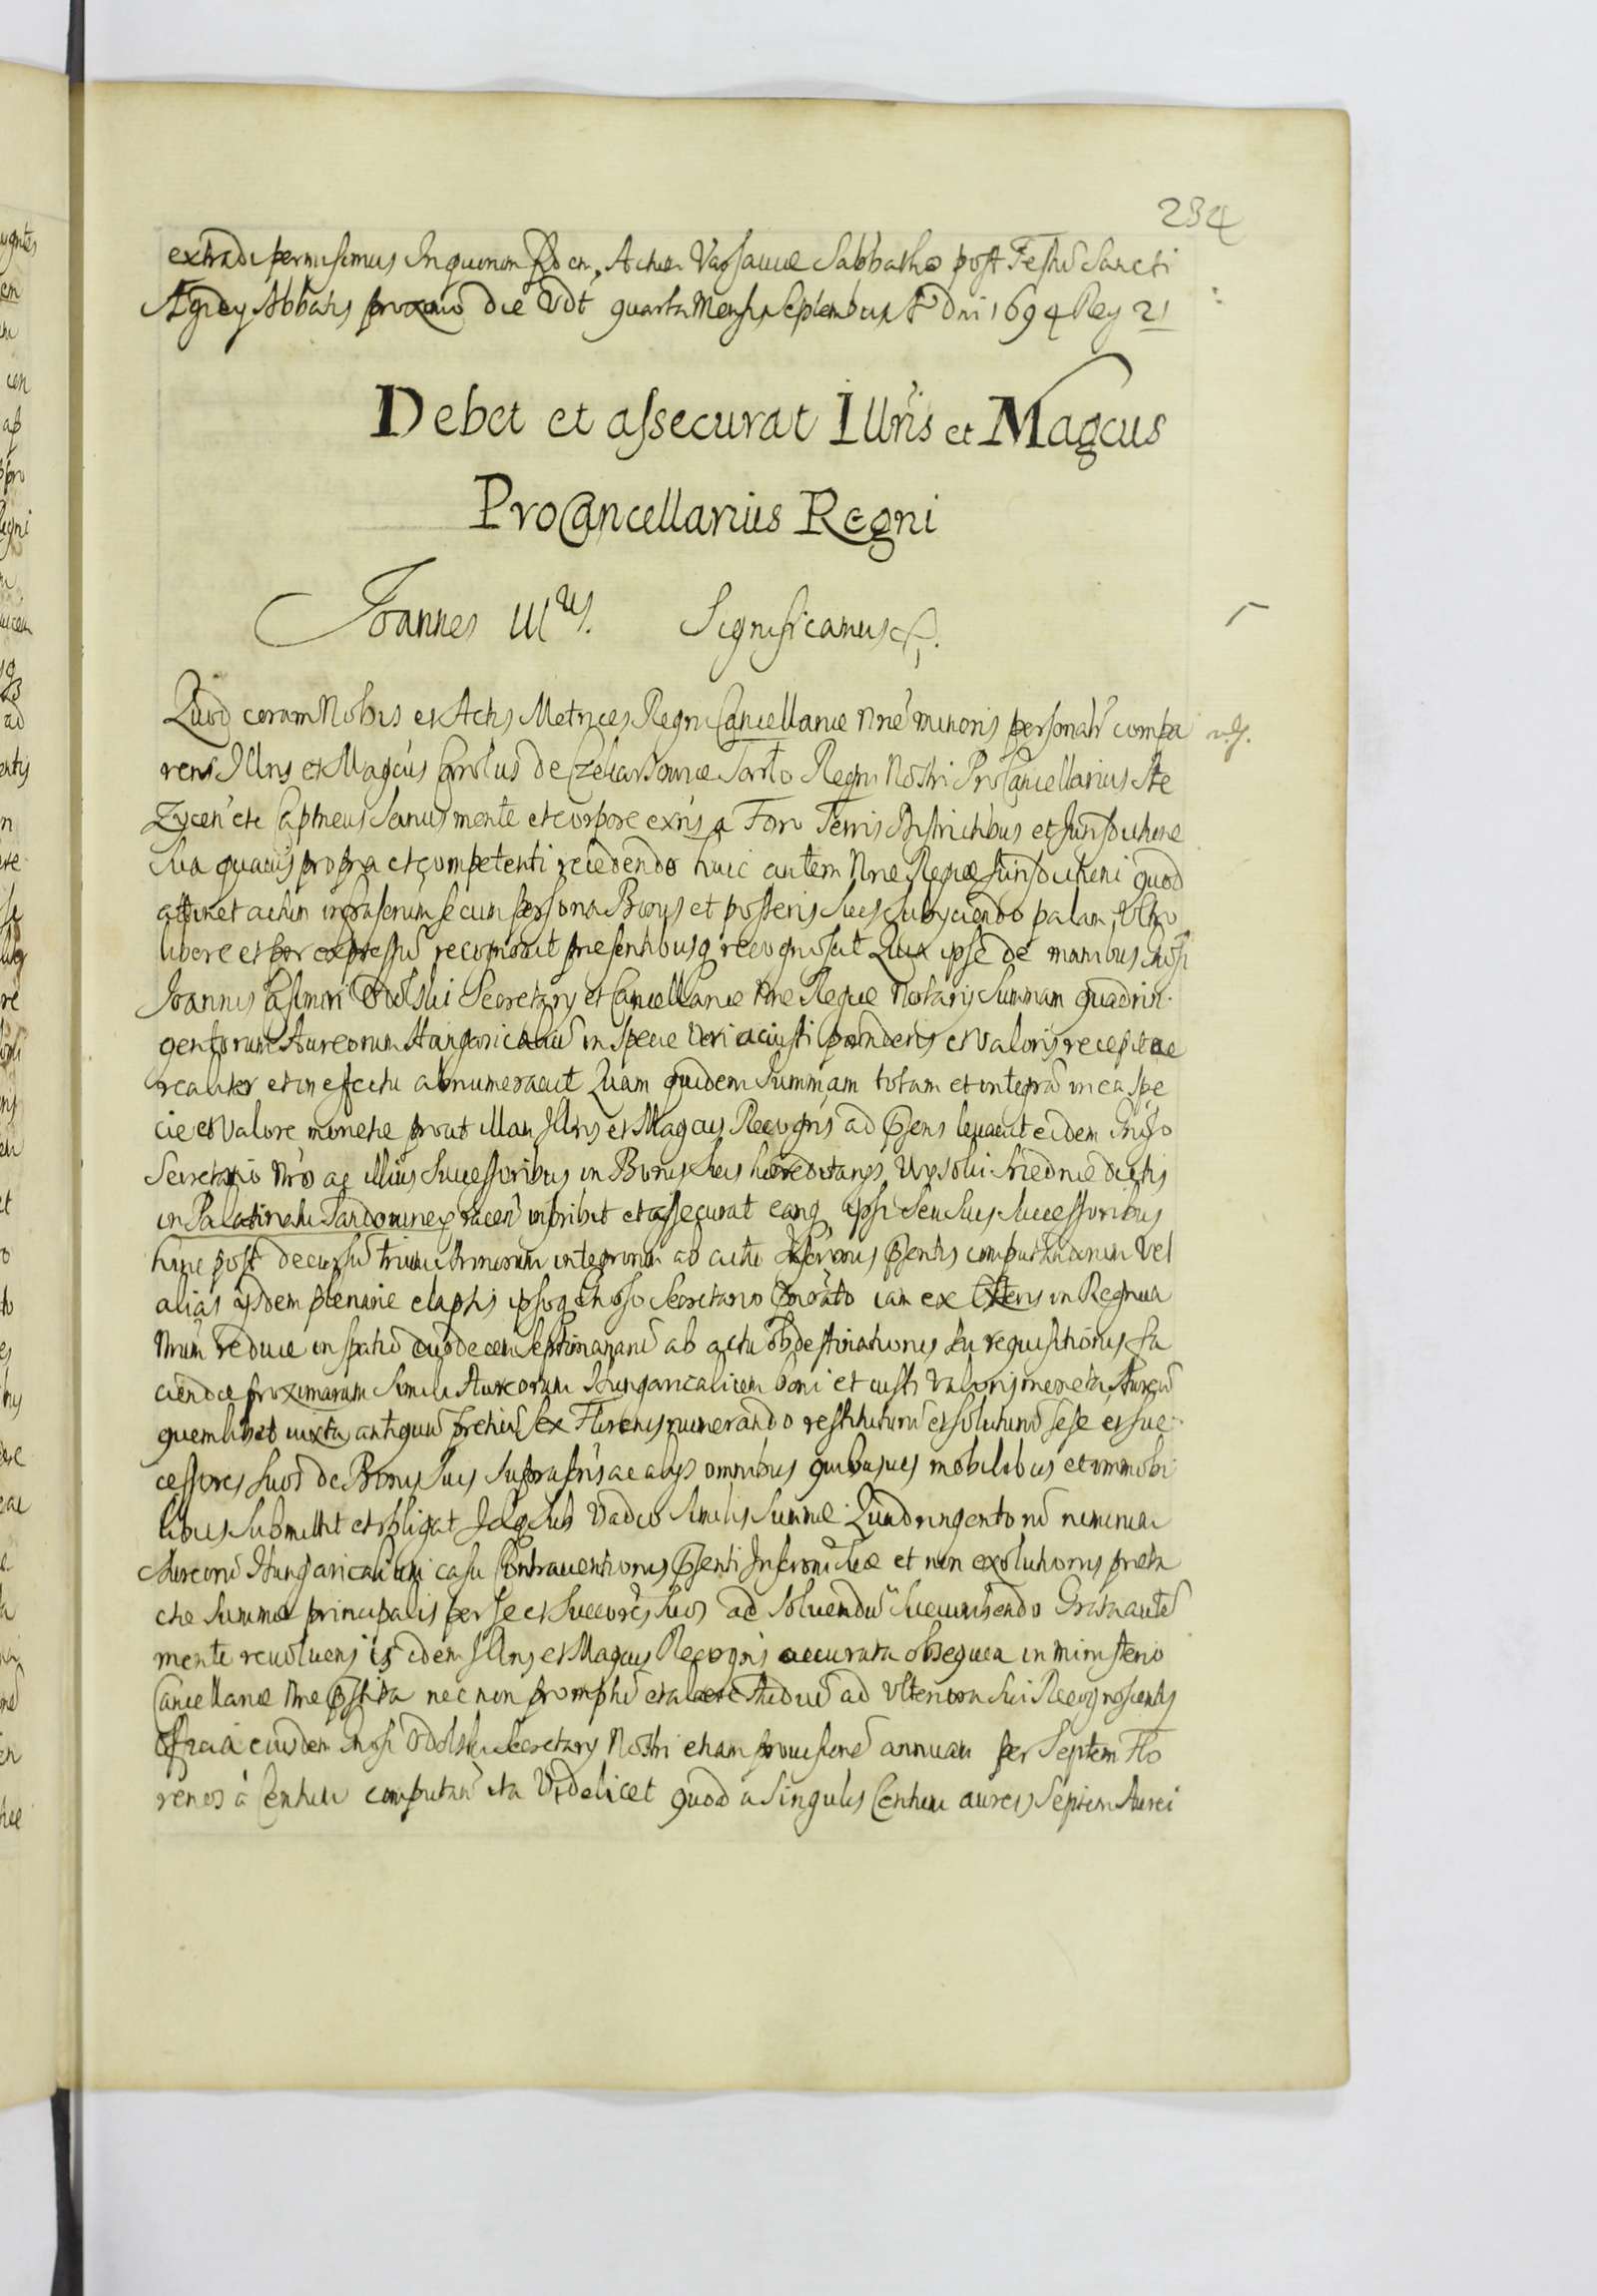 234
extradi permisimus In quorum fidem. Actum Varsaviæ Sabbatho post Festũ Sancti
Ægidy Abbatis proximo die Vdt quarta Mensis Septembris Aº Dni 1694 Reg 21
Debet et assecurat Illris et Magcus
ProCancellarius Regni
Joannes IIIus. Significamus &.
Quod coram Nobis et Actis Metrices Regni Cancellariæ Nræ minoris personalr compa
rens Illris et Magcus Carolus de Tarło Regni Nostri ProCancellarius Ste
zycen etc Capitneus Sanus mente et corpore exns a Foro Terris Districtibus et Jurisdictione
Sua quavis propria et competenti recedendo huic autem Nræ Regiæ Jurisdictioni quod
attinet actum infrascrium se cum persona Bonis et posteris Suis Subyciendo palam, Vltro
libere et per expressũ recognovit presentibusq recognoscit Quia ipse de manibus Gnosi
Joannis Casimiri Odolski Secretary et Cancellariæ Nræ Regiæ Notary Summam quadrin
gentorum Aureorum Hungaricaliũ in Specie Veri ac iusti ponderis et Valoris recepit ac
realiter et in effectu abnumeravit Quam quidem Summam totam et integrã in ea Spe
cie et Valore monetæ prout illam Illris et Magcus Recogns ad Psens levavit eidem Gnoso
Secretario Nro ac illius Successoribus in Bonis Suis hæreditarys dictis
in Palatinatu Sandomirien inscribit et assecurat eamq ipsi Seu Suis Successoribus
hinc post decursũ trium Annorum integrorum ab actu Inscronis Psentis computandorum Vel
alias ysdem plenarie elapsis ipsoq Gnoso Secretario iam ex Exteris in Regnum
Nrum reduce in spatio duodecim Septimanarũ ab actu obdestinationis Seu requisitionis fa
ciendæ proximarum Simili Aureorum Hungaricalium boni et iusti Valoris moneta Aureũ
quemlibet iuxta antiquũ pretiũ Sex Florenis numerando restituturũ et Soluturũ Sese et Suc
cessores Suos de Bonis Suis Suprascris ac alys omnibus quibusvis mobilibus et immobi
libus Submittit et obligat Idq Sub Vadio Similis Summæ Quadringentorũ numerum
Aureorũ Hungaricalium casu Contraventionis Psenti Inscroni Suæ et non exolutionis præta
ctæ Summæ principalis per Se et Succores Suos ad Solvendũ Succumbendo Grata autẽ
mente revolvens is idem Illris et Magcus Recogns accurata obsequia in ministerio
Cancellariæ Nræ Pstita nec non promptũ et Studiũ ad Vlteriora Sui Recognoscentis
Officia eiusdem Gnosi Odolski Secretary Nostri etiam provisionẽ annuam per Septem Flo
renos à Centum computan ita Videlicet quod a Singulis Centum aureis Septem Aurei